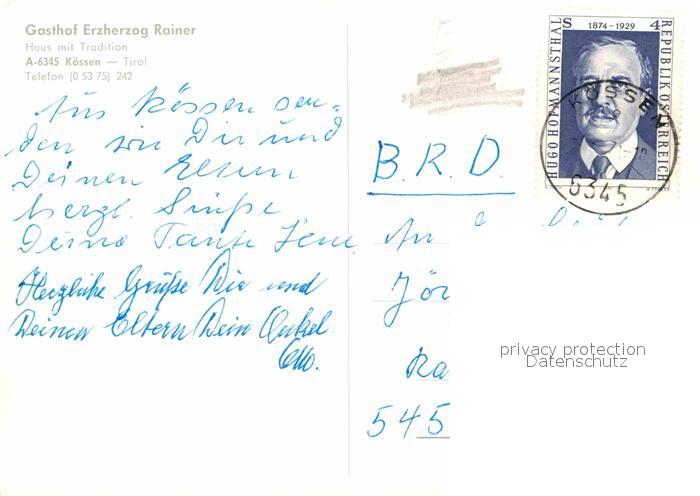 Gasthof Erzherzog Rainer
Haus mit Tradition
A-6345 Kössen — Tirol
Telefon (0 53 75) 242
Aus Kössen sen-
den wir Dir und
Deinen Eltern
herzl. Grüße
Deine Tante Leni
Herzliche Grüße Dir und
Deinen Eltern Dein Onkel
Otto.
B.R.D.
An
Jör
Ra
545
S 1874-1929 4
HUGO HOFMANNSTHAL
REPUBLIK ÖSTERREICH
KÖSSEN
6345
privacy protection
Datenschutz